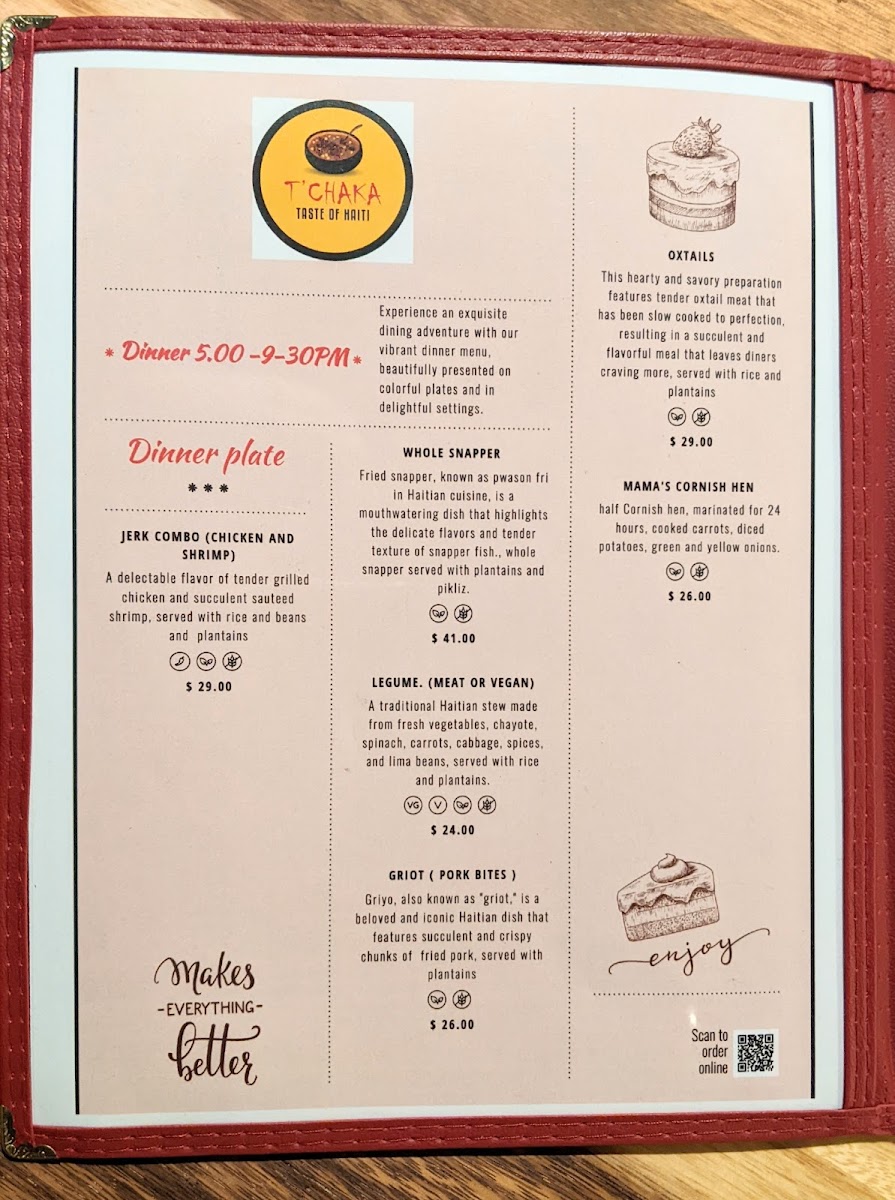 T'CHAKA
TASTE OF HAITI
* Dinner 5.00 -9-30PM *
Experience an exquisite
dining adventure with our
vibrant dinner menu,
beautifully presented on
colorful plates and in
delightful settings.
Dinner plate
***
JERK COMBO (CHICKEN AND
SHRIMP)
A delectable flavor of tender grilled
chicken and succulent sauteed
shrimp, served with rice and beans
and plantains
$ 29.00
Makes
-EVERYTHING-
better
WHOLE SNAPPER
Fried snapper, known as pwason fri
in Haitian cuisine, is a
mouthwatering dish that highlights
the delicate flavors and tender
texture of snapper fish., whole
snapper served with plantains and
pikliz.
$ 41.00
LEGUME. (MEAT OR VEGAN)
A traditional Haitian stew made
from fresh vegetables, chayote,
spinach, carrots, cabbage, spices,
and lima beans, served with rice
and plantains.
VG V
$ 24.00
GRIOT ( PORK BITES )
Griyo, also known as "griot," is a
beloved and iconic Haitian dish that
features succulent and crispy
chunks of fried pork, served with
plantains
$ 26.00
OXTAILS
This hearty and savory preparation
features tender oxtail meat that
has been slow cooked to perfection,
resulting in a succulent and
flavorful meal that leaves diners
craving more, served with rice and
plantains
$ 29.00
MAMA'S CORNISH HEN
half Cornish hen, marinated for 24
hours, cooked carrots, diced
potatoes, green and yellow onions.
$ 26.00
enjoy
Scan to
order
online